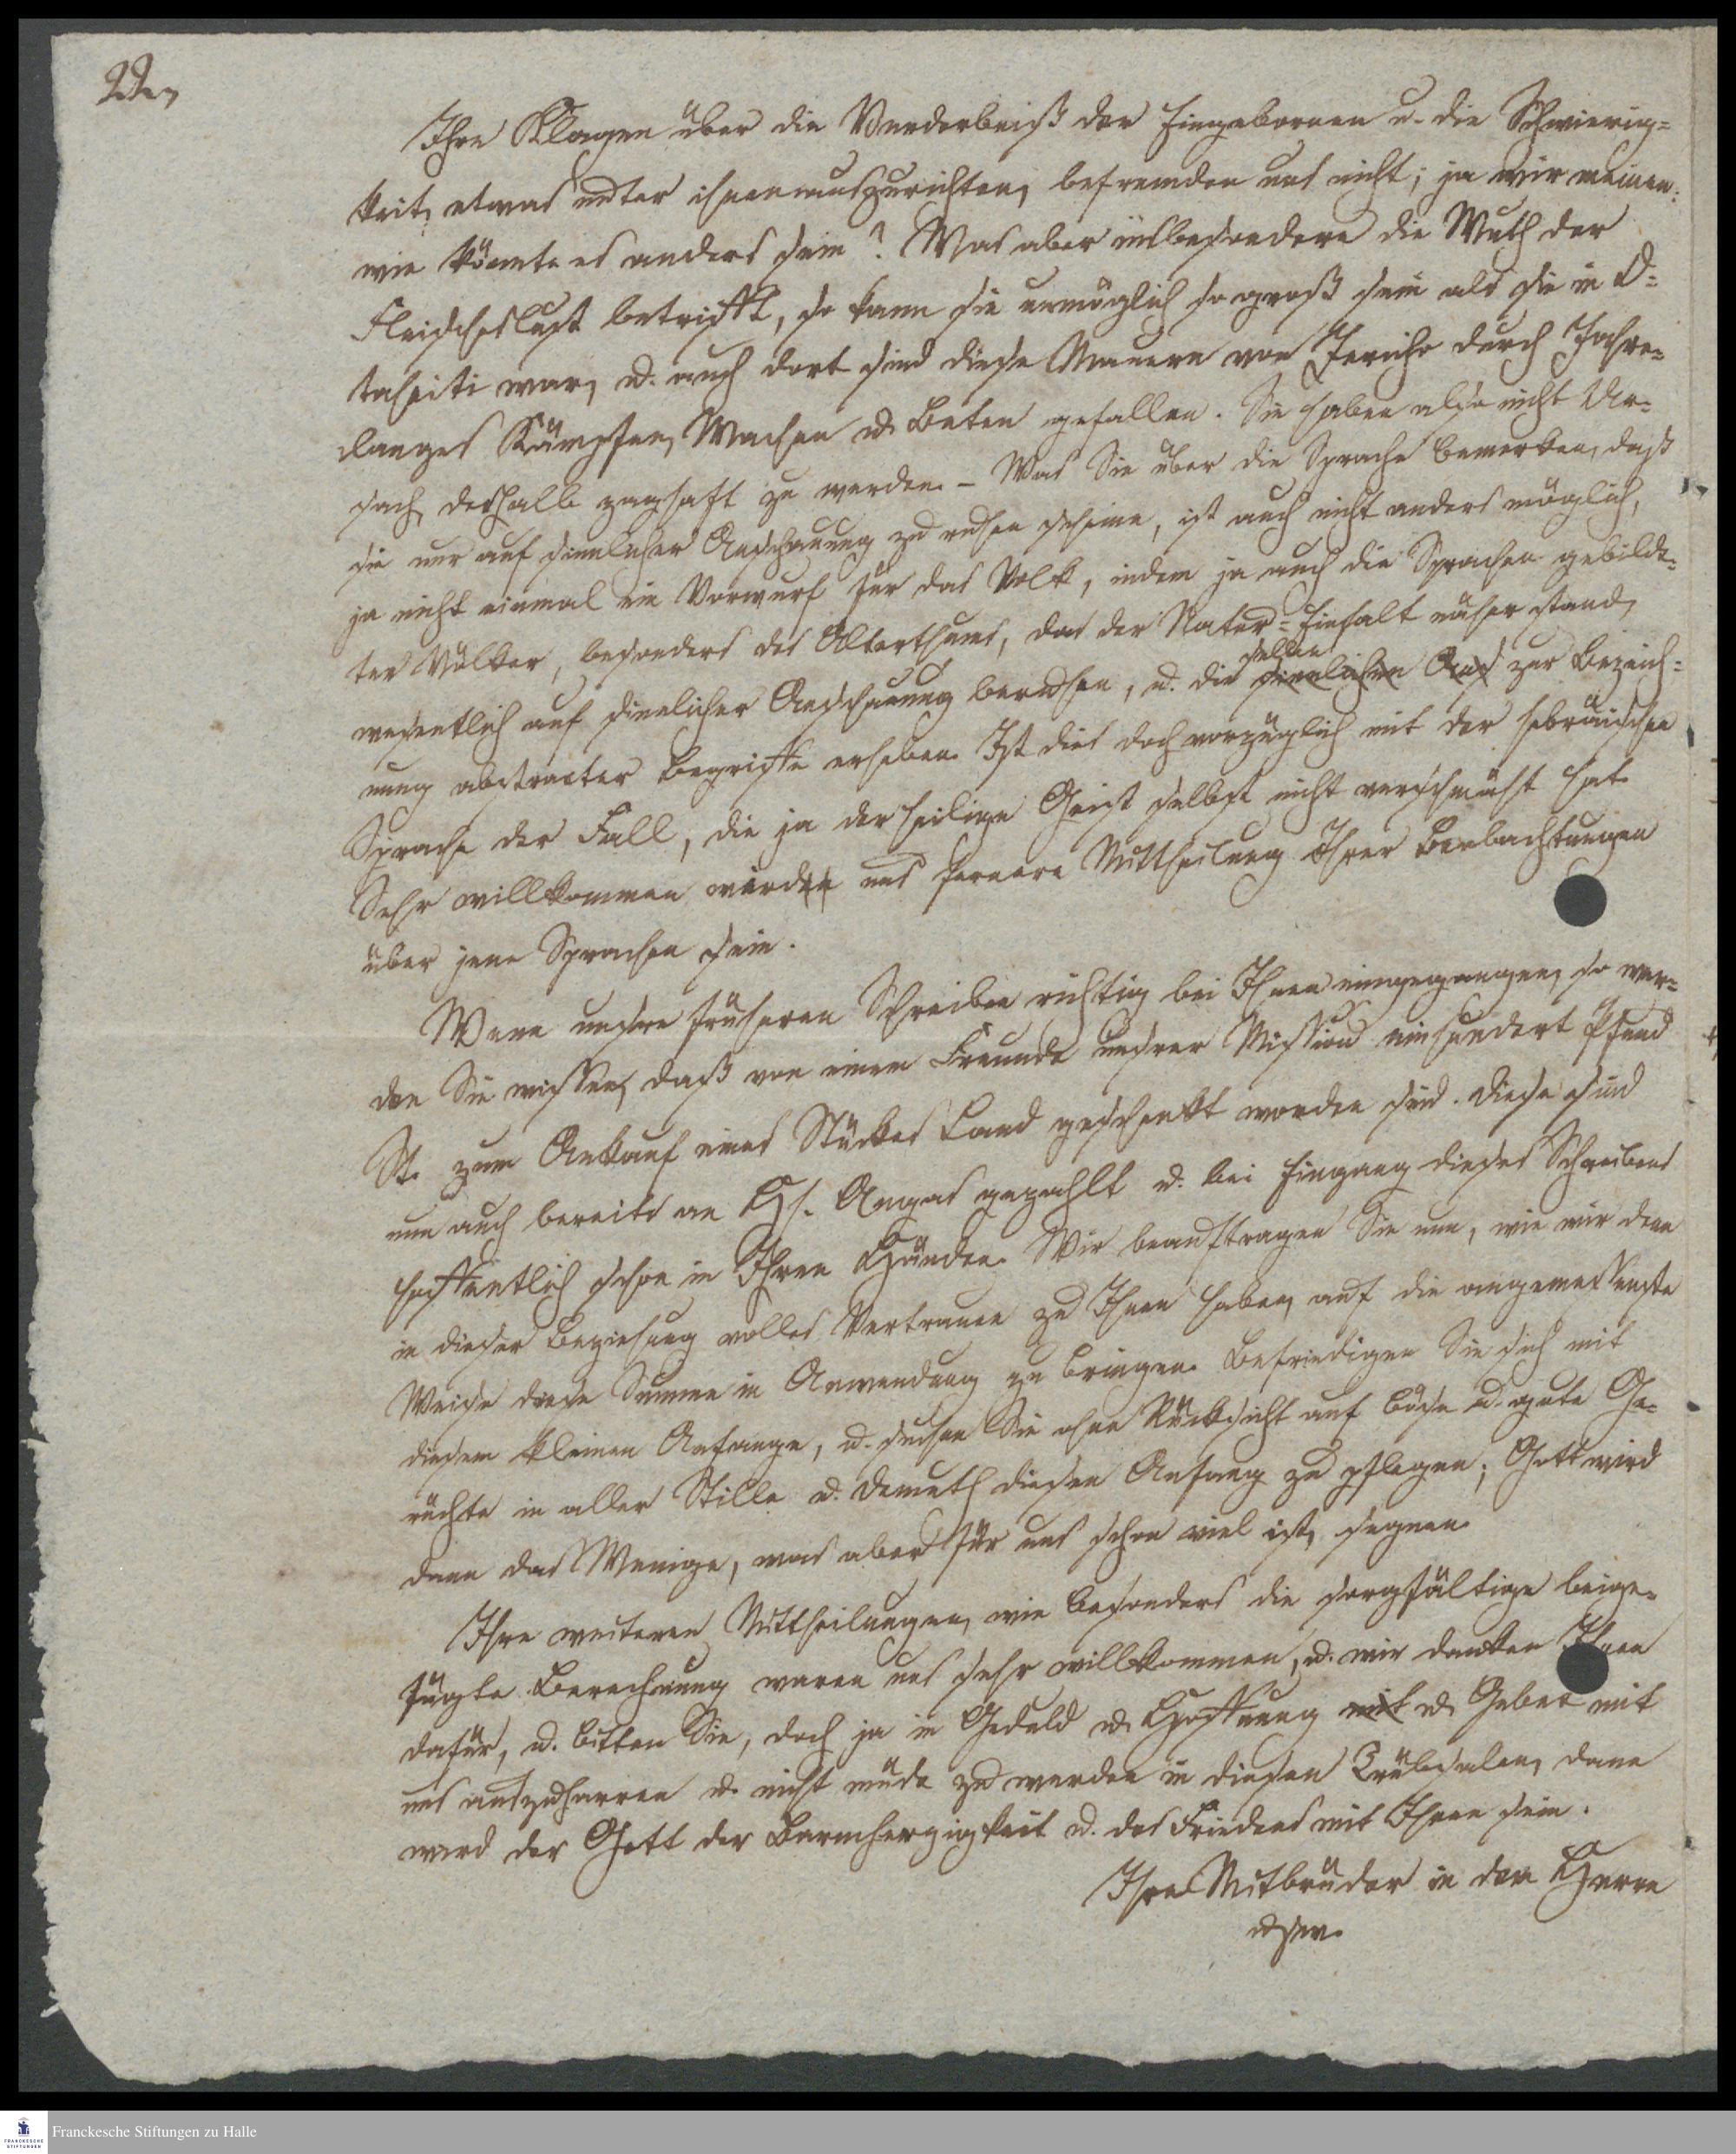 Ihre Klagen über die Verderbniß der Eingebornen u. die Schwierig-
keit, etwas unter ihnen auszurichten, befremden uns nicht; ja wir meinen:
wie könnte es anders sein? Was aber insbesondere die Wuth der
Fleischeslust betrifft, so kann sie unmöglich so groß sein als sie in O-
taheiti war, u. auch dort sind diese Mauern von Jericho durch Jahre-
langes Kämpfen, Wachen u. Beten gefallen. Sie haben also nicht Ur-
sach, deshalb zaghaft zu werden. – Was Sie über die Sprache bemerken, daß
sie nur auf sinnlicher Anschauung zu ruhen scheine, ist auch nicht anders möglich,
ja nicht einmal ein Vorwurf für das Volk, indem ja auch die Sprachen gebilde-
ter Völker, besonders des Alterthums, das der Natur-Einfalt näher stand,
wesentlich auf sinnlicher Anschauung beruhen, u. die sinnlichen Aus zur Bezeich-
selben
nung abstracter Begriffe erheben. Ist dies doch vorzüglich mit der hebräischen
Sprache der Fall, die ja der heilige Geist selbst nicht verschmäht hat.
Sehr willkommen werden uns fernere Mittheilung Ihrer Beobachtungen
über jene Sprachen sein.
Wenn unsere früheren Schreiben richtig bei Ihnen eingegangen, so wer-
den Sie wissen, daß von einem Freunde unsrer Mission einhundert Pfund
St. zum Ankauf eines Stückes Land geschenkt worden sind. Diese sind
nun auch bereits an H. Angas gezahlt u. bei Eingang dieses Schreibens
hoffentlich schon in Ihren Händen. Wir beauftragen Sie nun, wie wir denn
in dieser Beziehung volles Vertrauen zu Ihnen haben, auf die angemessenste
Weise diese Summe in Anwendung zu bringen. Befriedigen Sie sich mit
diesem kleinen Anfange, u. suchen Sie ohne Rücksicht auf böse u. gute Ge-
rüchte in aller Stille u. Demuth diesen Anfang zu pflegen; Gott wird
dann das Wenige, was aber für uns schon viel ist, segnen.
Ihre weiteren Mittheilungen, wie besonders die sorgfältige beige-
fügte Berechnung waren uns sehr willkommen, u. wir danken Ihnen
dafür, u. bitten Sie, doch ja in Geduld u. Hoffnung mit u. Gebet mit
uns auszuharren u. nicht müde zu werden in diesen Trübsalen, dann
wird der Gott der Barmherzigkeit u. des Friedens mit Ihnen sein.
Ihre Mitbrüder in dem Herrn
usw.
Franckesche Stiftungen zu Halle
FRANCKESCHE
STIFTUNGEN